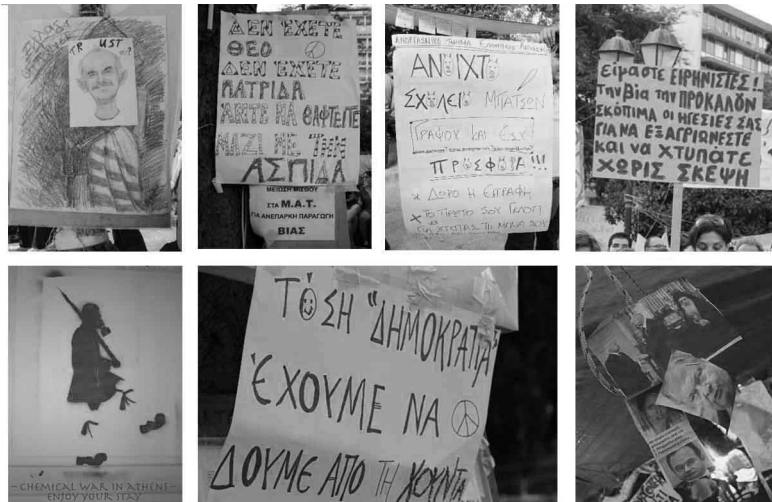 TR UST
ΔΕΝ ΈΧΕΤΕ
ΘΕΟ
ΔΕΝ ΈΧΕΤΕ
ΠΑΤΡΙΔΑ
ΆΝΤΕ ΝΑ ΘΑΦΤΕΙΤΕ
ΜΑΖΙ ΜΕ ΤΗΝ
ΑΣΠΙΔΑ
ΜΕΙΩΣΗ ΜΙΣΘΟΥ
ΣΤΑ Μ.Α.Τ.
ΓΙΑ ΑΝΕΠΑΡΚΗ ΠΑΡΑΓΩΓΗ
ΒΙΑΣ
ΑΝΟΙΧΤΟ
ΣΧΟΛΕΙΟ ΜΠΑΤΣΩΝ
ΓΡΑΨΟΥ ΚΑΙ ΕΣΥ
ΠΡΟΣΦΟΡΑ!!!
ΔΩΡΟ Η ΕΓΓΡΑΦΗ
Είμαστε ΕΙΡΗΝΙΣΤΕΣ!!
Την βία την ΠΡΟΚΑΛΟΥΝ
ΣΚΟΠΙΜΑ ΟΙ ΗΓΕΣΙΕΣ ΣΑΣ
ΓΙΑ ΝΑ ΕΞΑΓΡΙΩΝΕΣΤΕ
και να ΧΤΥΠΑΤΕ
ΧΩΡΙΣ ΣΚΕΨΗ
- CHEMICAL WAR IN ATHENS -
ENJOY YOUR STAY
ΤΌΣΗ "ΔΗΜΟΚΡΑΤΙΑ"
ΈΧΟΥΜΕ ΝΑ
ΔΟΥΜΕ ΑΠΟ ΤΗ ΧΟΥΝΤΑ